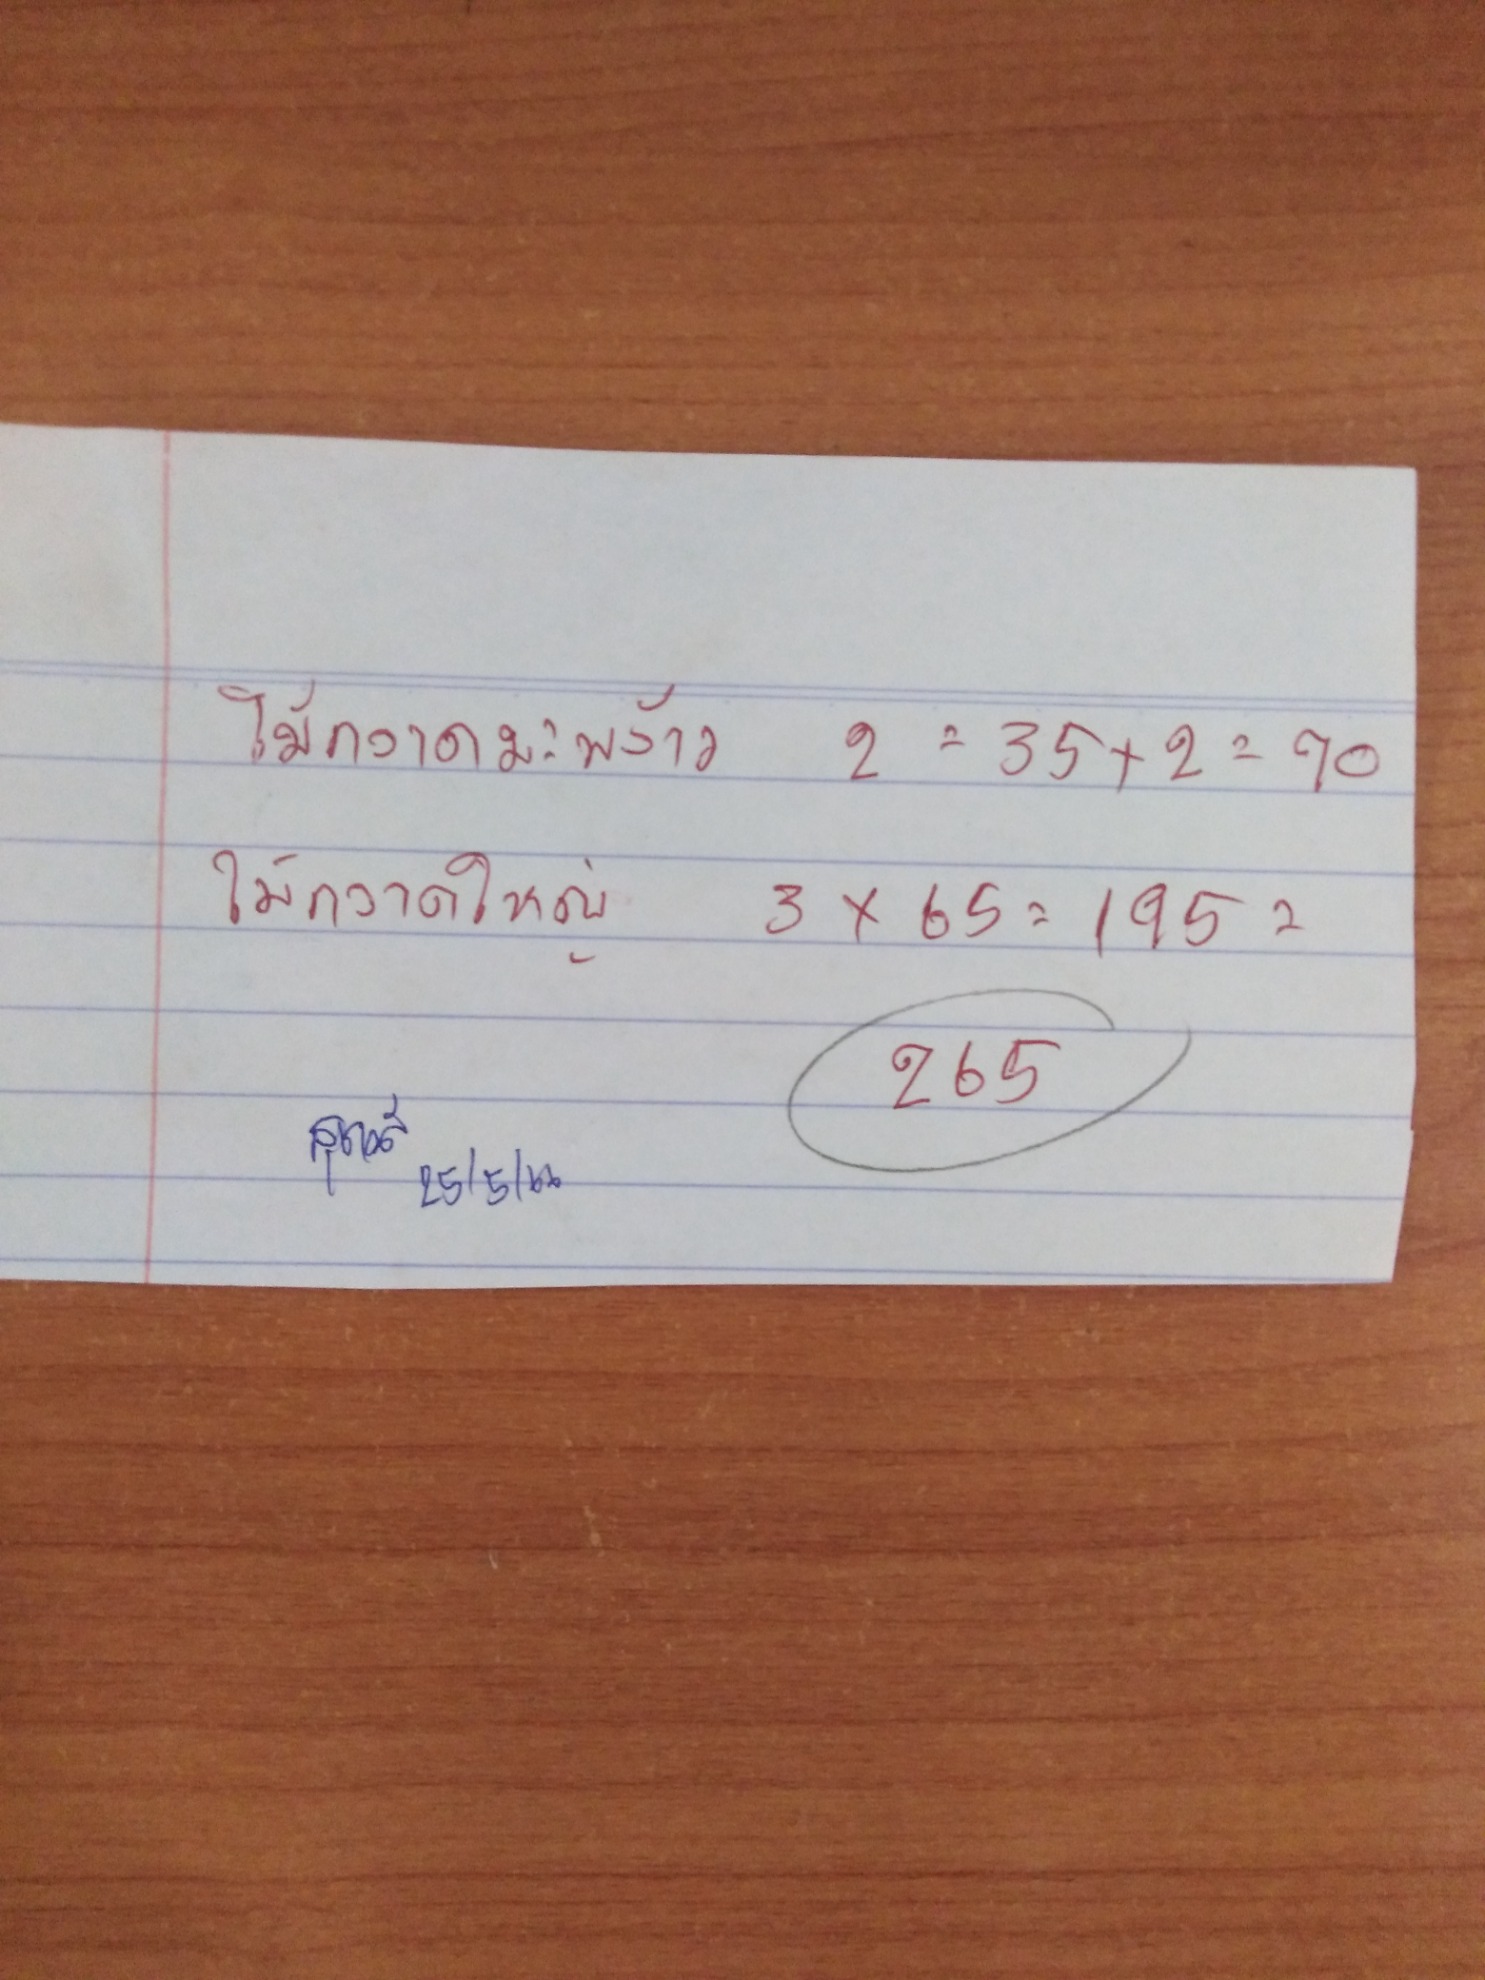 ไม้กวาดมะพร้าว 2 = 35+2 = 70
ไม้กวาดใหญ่ 3 x 65 = 195 =
265
25/5/